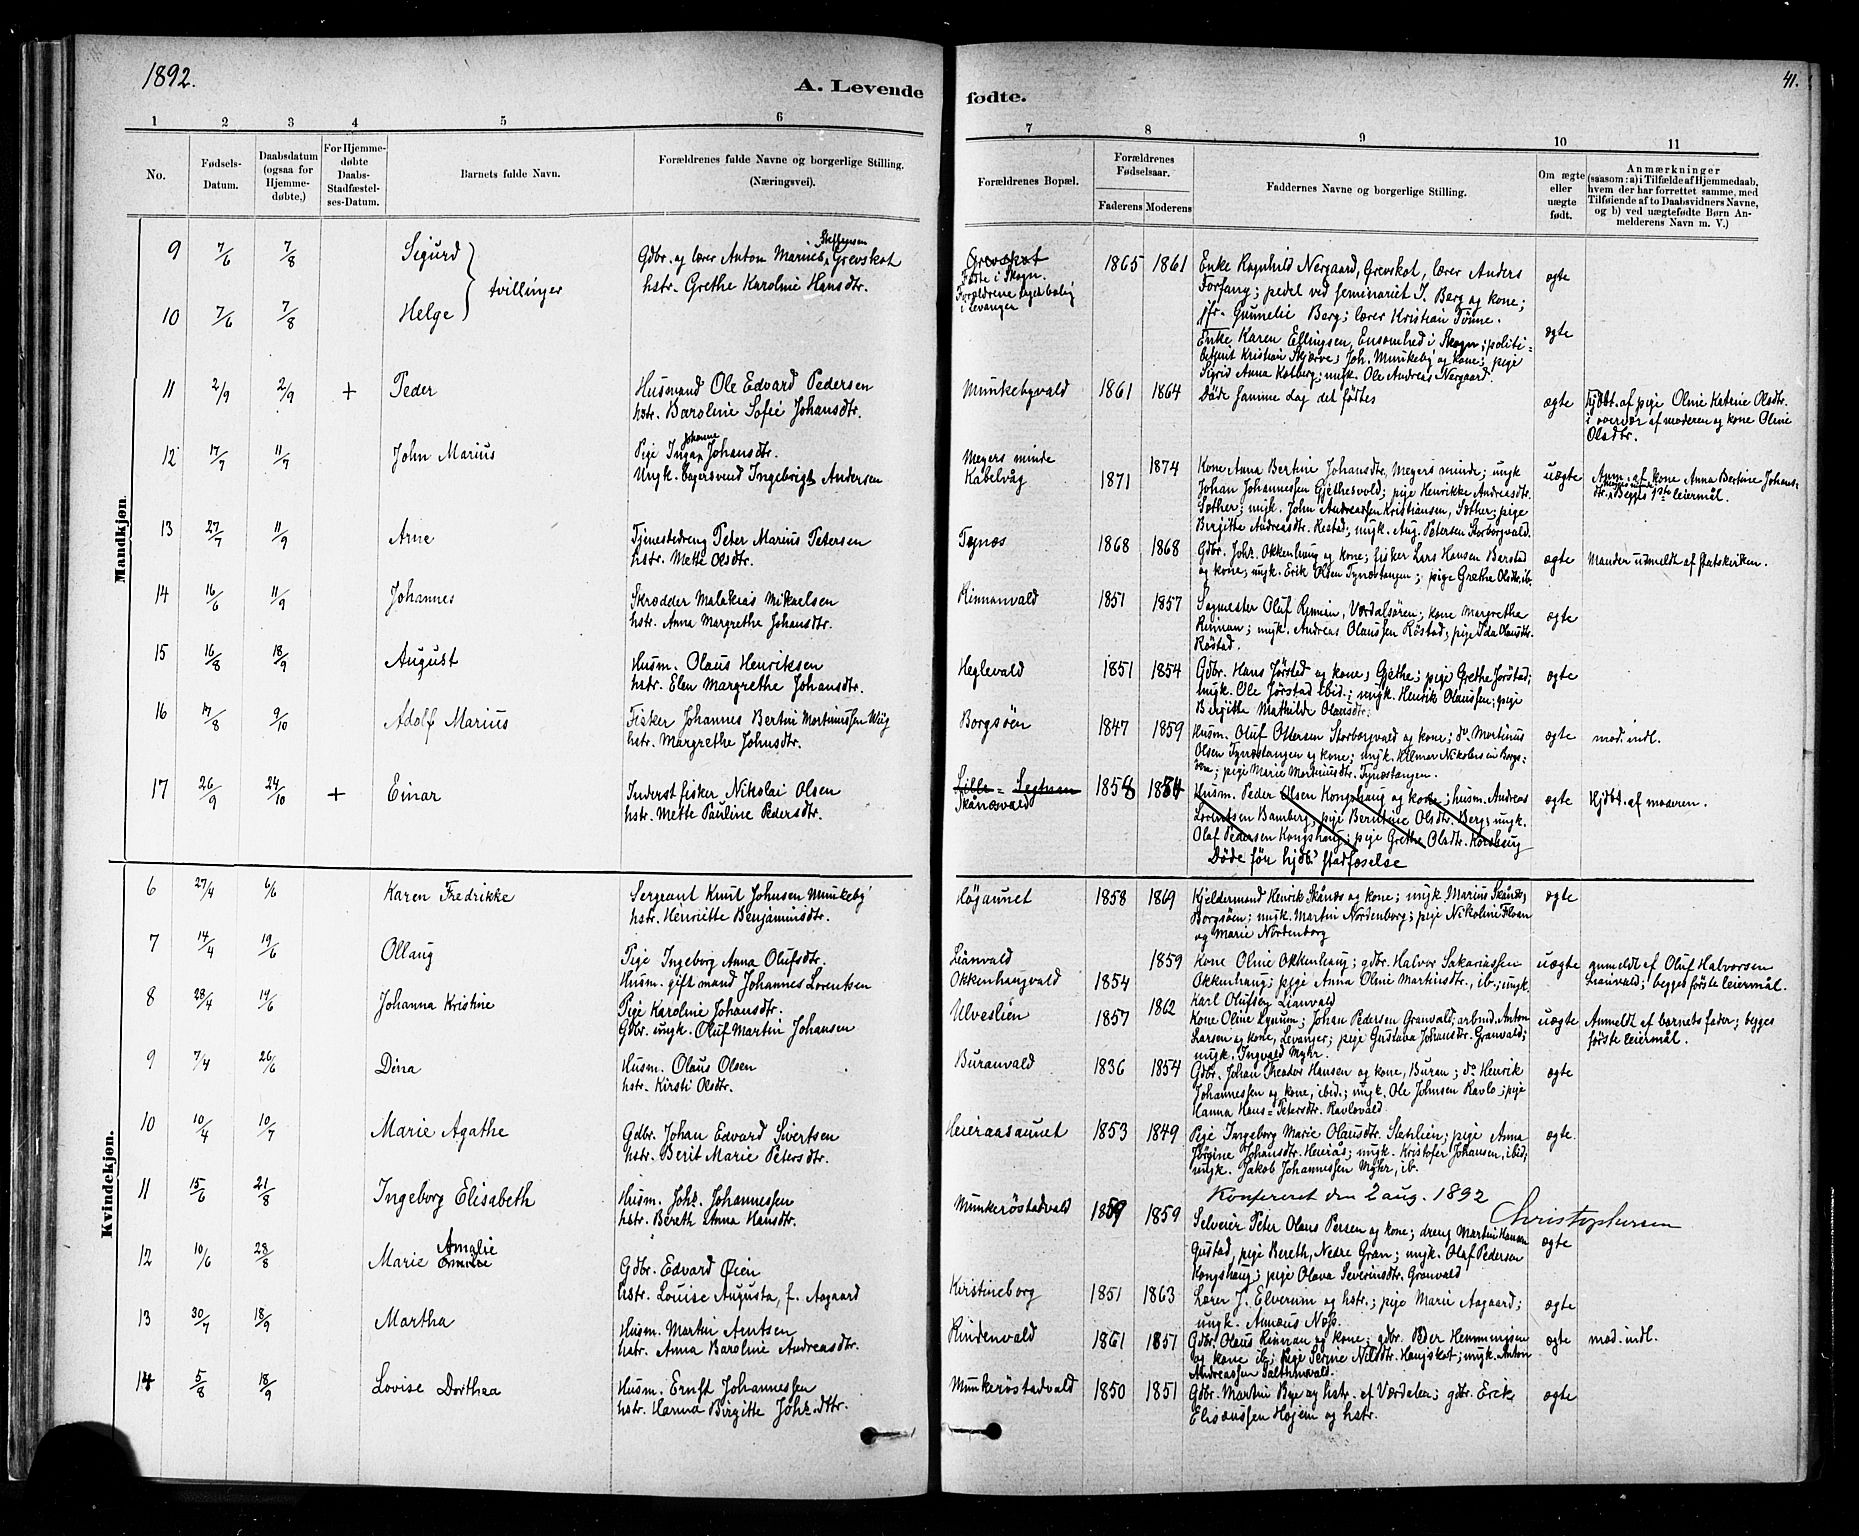 1892.
41.
A. Levende fødte.
1 2 3 4 5 6 7 8 9 10 11
No.
Fødsels-
Datum.
Daabsdatum
(ogsaa for
Hjemme-
døbte,)
For Hjemme-
døbte
Daabs-
Stadfæstel-
ses-Datum.
Barnets fulde Navn.
Forældrenes fulde Navne og borgerlige Stilling.
(Næringsvei).
Forældrenes Bopæl.
Forældrenes
Fødselsaar.
Faderens Moderens
Faddernes Navne og borgerlige Stilling.
Om ægte
eller
uægte
født.
Anmærkninger
(saasom: a) i Tilfælde af Hjemmedaab,
hvem der har forrettet samme, med
Tilføiende af to Daabsvidners Navne,
og b) ved uægtefødte Børn An-
melderens Navn m. V.)
Mandkjøn.
9 7/6 7/8 Sigurd
tvillinger
Gdbr. og lærer Anton Marius Steffensen Grevskot
hstr. Grethe Karoline Hansdtr.
Grevskot
Fødte i Skogn.
Forældrene
i Levanger
1865 1861
Enke Ragnhild Nergaard, Grevskot, lærer Anders
Forfang; pedel ved seminariet J. Berg og kone;
jfr. Gunnelie Berg; lærer Kristian Tønne.
ægte
10 7/6 7/8 Helge
Enke Karen Ellingsen, Ensomhed i Skogn; politi-
betjent Kristian Skjerve; Joh. Munkeby og kone; pige
Sigrid Anna Kolberg; ungk. Ole Andreas Nergaard.
ægte
11 2/9 2/9 + Peder
Husmand Ole Edvard Pedersen
hstr. Baroline Sofie Johansdtr.
Munkebyvald
1861 1864
Døde samme dag det fødtes
ægte
hjdbt. af pige Oline Katrine Olsdtr.
i overvær af moderen og kone Oline
Olsdtr.
12 17/7 11/9 John Marius
Pige Inga Johanne Johansdtr.
Ungk. bagersvend Ingebrigt Andersen
Meyers minde
Kabelvåg
1871 1874
Kone Anna Bertine Johansdtr. Meyers minde; ungk
Johan Johannessen Gjethesvold; pige Henrikke Andreasdtr.
Sæther; ungk. John Andreassen Kristiansen, Sæther; pige
Birgitte Andreasdtr. Restad; ungk. Aug. Petersen Storborgvald.
uægte
Anm. af kone Anna Bertine Johans-
dtr. Meyers minde. Begges 1ste leiermål.
13 27/7 11/9 Arne
Tjenestedreng Peter Marius Petersen
hstr. Mette Olsdtr.
Tynæs
1868 1868
Gdbr. Johs. Okkenhaug og kone; fisker Lars Hansen Barstad
og kone; ungk. Erik Olsen Tynæstangen; pige Grethe Olsdtr. ib.
ægte
Manden udmeldt af statskirken.
14 16/6 11/9 Johannes
Skrædder Malakias Mikaelsen
hstr. Anna Margrethe Johansdtr.
Rinnanvald
1851 1857
Sagmester Oluf Rinnan, Værdalsøren; kone Margrethe
Rinnan; ungk. Andreas Olaussen Røstad; pige Ida Olausdtr.
Røstad.
ægte
15 16/8 18/9 August
Husm. Olaus Henriksen
hstr. Elen Margrethe Johansdtr.
Heglevald
1851 1854
Gdbr. Hans Jørstad og kone, Gjethe; pige Grethe Jørstad;
ungk. Ole Jørstad ibid.; ungk. Henrik Olaussen; pige
Birgitte Mathilde Olausdtr.
ægte
16 17/8 9/10 Adolf Marius
Fisker Johannes Bertin Mortinussen Wiig
hstr. Margrethe Johnsdtr.
Borgsøen
1847 1859
Husm. Oluf Ottersen Storborgvald og kone; do Mortinus
Olsen Tynæstangen og kone; ungk. Hilmar Nikolaisen Borgs-
øen; pige Marie Mortinusdtr. Tynæstangen.
ægte
mod. indl.
17 26/9 24/10 + Einar
Inderst fisker Nikolai Olsen
hstr. Mette Pauline Pedersdtr.
Skånesvald
1858 1854
Husm. Peder Olsen Kongshaug og kone; husm. Andreas
Lorentsen Bamberg; pige Berntine Olsdtr. Berg; ungk.
Olaf Pedersen Kongshaug; pige Grethe Olsdtr. Korshaug
Døde før hjdb.s stadfæstelse
ægte
Hjdbt. af moderen.
Kvindekjøn.
6 27/4 6/6 Karen Fredrikke
Sergeant Knut Johnsen Munkeby
hstr. Henriette Benjaminsdtr.
Højaunet
1858 1869
Kjeldermand Henrik Skånes og kone; ungk Marius Skånes,
Borgsøen; ungk. Martin Nordenborg; pige Nikoline Floan
og Marie Nordenborg
ægte
7 14/4 19/6 Ollaug
Pige Ingeborg Anna Olufsdtr.
Husm. gift mand Johannes Lorentsen
Lianvald
Okkenhaugvald
1854 1859
Kone Oline Okkenhaug; gdbr. Halvor Sakariassen
Okkenhaug; pige Anna Oline Martinsdtr., ib.; ungk.
Karl Olufsen Lianvald
uægte
anmeldt af Oluf Halvorsen
Lianvald; begges første leiermål.
8 28/4 19/6 Johanna Kristine
Pige Karoline Johansdtr.
Gdbr. ungk. Oluf Martin Johansen
Ulveslien
1857 1862
Kone Oline Lynum; Johan Pedersen Granvald; arbmd. Anton
Larsen og kone, Levanger; pige Gustava Johansdtr. Granvald;
ungk. Ingvald Myhr.
uægte
Anmeldt af barnets fader; begges
første leiermål.
9 7/4 26/6 Dina
Husm. Olaus Olsen
hstr. Kirsti Olsdtr.
Buranvald
1836 1854
Gdbr. Johan Theodor Hansen og kone, Buran; do Henrik
Johannessen og kone, ibid.; ungk. Ole Johnsen Ravlo; pige
Hanna Hans-Petersdtr. Ravlovald
ægte
10 10/4 10/7 Marie Agathe
Gdbr. Johan Edvard Sivertsen
hstr. Berit Marie Petersdtr.
Heieraasaunet
1853 1849
Pige Ingeborg Marie Olausdtr. Stehlien; pige Anna
Jørgine Johansdtr. Heirås; ungk. Kristofer Johansen, ibid;
ungk. Jakob Johannessen Myhr, ib.
ægte.
Konfereret den 2 aug. 1892
Christophersen
11 15/6 21/8 Ingeborg Elisabeth
Husm. Johs. Johannessen
hstr. Bereth Anna Hansdtr.
Munkerøstadvald
1859 1859
Selveier Peter Olaus Persen og kone; dreng Martin Hansen
Gustad, pige Bereth, Nedre Gran; ungk. Olaf Pedersen
Kongshaug; pige Olava Severinsdtr. Granvald
ægte
12 10/6 28/8 Marie Amalie
Gdbr. Edvard Øien
hstr. Louise Augusta, f. Aagaard
Kristineborg
1851 1863
Lærer J. Elverum og hstr.; pige Marie Aagaard;
ungk. Annæus Næss.
ægte
13 30/7 18/9 Martha
Husm. Martin Arntsen
hstr. Anna Baroline Andreasdtr.
Rindenvald
1861 1857
Gdbr. Olaus Rinnan og kone; gdbr. Peder Hemmingsen
og kone ib; pige Serine Nilsdtr. Haugskot; ungk. Anton
Andreassen Salthmvald.
ægte
mod. indl.
14 5/8 18/9 Lovise Dorthea
Husm. Ernst Johannessen
hstr. Hanna Birgitte Johs.dtr.
Munkerøstadvald
1850 1851
Gdbr. Martin Bye og hstr. af Værdalen; gdbr. Erik
Elisæussen Højem og hstr.
ægte